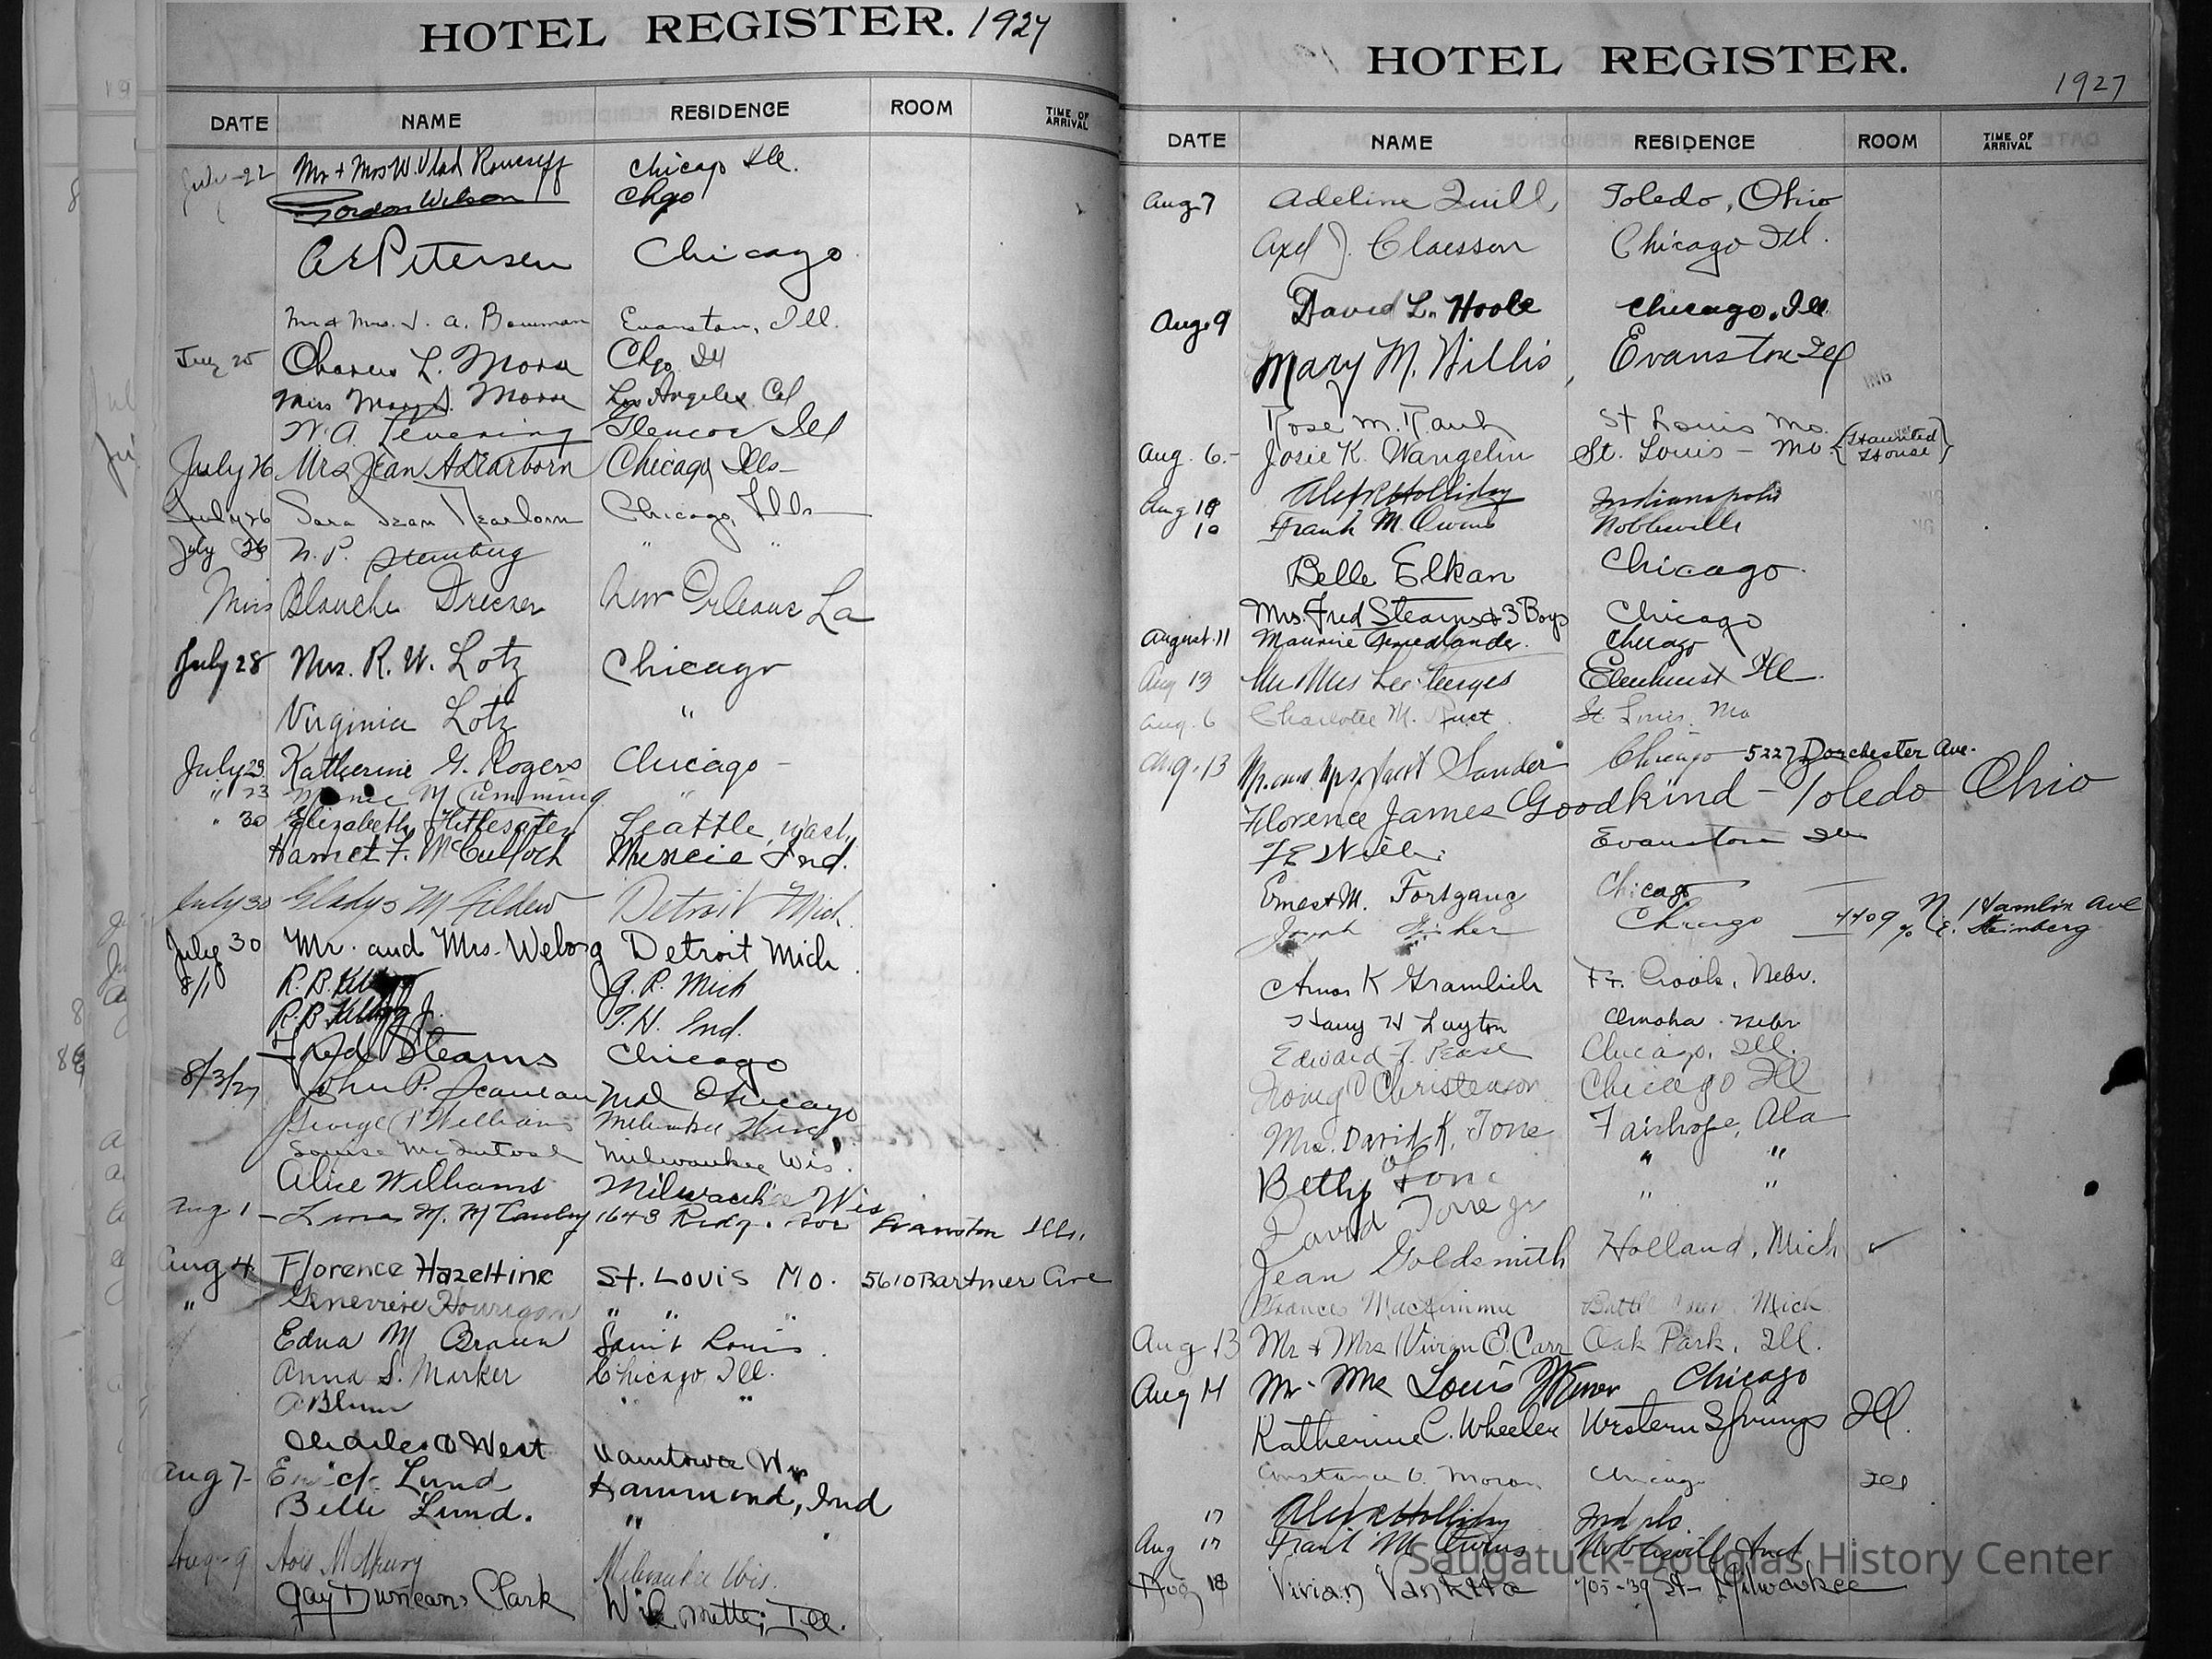 HOTEL REGISTER. 1927
DATE NAME RESIDENCE ROOM TIME OF ARRIVAL
July 22 Mr + Mrs W. Vlad Chicago Ill.
Gordon Wilson Chgo
A E Petersen Chicago
Mr & Mrs. J. A. Bowman Evanston, Ill.
July 25 Charles L. Morse Chgo Ill
Miss Mary S. Morse Los Angeles Cal
W. A. Levering Glencoe Ill
July 26 Mrs Jean A Dearborn Chicago Ills-
July 26 Sara Jean Dearborn Chicago, Ills-
July 26 N. P. Steinberg " "
Miss Blanche New Orleans La
July 28 Mrs. R. W. Lotz Chicago
Virginia Lotz "
July 29 Katherine G. Rogers Chicago -
" 23 M Cumming "
" 30 Elizabeth Seattle, Wash.
Harriet F. McCulloch Muncie Ind.
July 30 Gladys M Gildew Detroit Mich
July 30 Mr. and Mrs. Weborg Detroit Mich
8/1 R. B. G. R. Mich
R. B. Jr. T. H. Ind.
Fred Stearns Chicago
8/3/27 John P. Chicago
George P Williams Milwaukee Wisc
Louise McIntosh Milwaukee Wis.
Alice Williams Milwaukee Wis
Aug 1 - 1643 Ridge Ave Evanston Ills.
Aug 4 Florence Hazeltine St. Louis Mo. 5610 Bartmer Ave
" Genevieve Hourigan " " "
Edna M Braun Saint Louis.
Anna S. Marker Chicago, Ill.
A Blum " "
Charles O West Manitowoc Wis
Aug 7- Lund Hammond, Ind
Belle Lund. "
Aug - 9 Milwaukee Wis.
Gay Duncan Clark Wilmette, Ill.
HOTEL REGISTER.
1927
DATE NAME RESIDENCE ROOM TIME OF ARRIVAL
Aug 7 Adeline Quill, Toledo, Ohio
Axel J. Claesson Chicago Ill.
Aug. 9 David L. Hoole Chicago, Ill
Mary M. Willis, Evanston Ill
Rose M. Rauh St Louis Mo.
Aug. 6.- Josie K. Wangelin St. Louis - Mo (Haunted House)
Aug 10 Alex R Holliday Indianapolis
10 Frank M. Owens Noblesville
Belle Elkan Chicago.
Mrs. Fred Stearns & 3 Boys Chicago
August. 11 Maurice Friedlander. Chicago
Aug 13 Mr Mrs Lee Sturges Elmhurst Ill.
Aug. 6 Charlotte M. Rust. St. Louis. Mo
Aug. 13 Mr. and Mrs. Sander Chicago 5227 Dorchester Ave.
Florence James Goodkind - Toledo Ohio
Evanston Ill
Ernest M. Fortgang Chicago
Joseph Fisher Chicago 4409 N. Hamlin Ave
% E. Steinberg
Amos K Gramlich Ft. Crook, Nebr.
Harry H Layton Omaha. Nebr
Edward F. Pease Chicago, Ill.
Irving C Christenson Chicago Ill
Mrs. David K. Tone Fairhope, Ala
Betty Tone " "
David Tone Jr " "
Jean Goldsmith Holland, Mich ✓
Frances MacKimmie Battle Creek Mich
Aug 13 Mr & Mrs Vivian E. Carr Oak Park, Ill.
Aug 14 Mr - Mrs Louis Chicago
Katherine C. Wheeler Western Springs Ill.
Constance C. Moran Chicago Ill
17 Alex R Holliday Indpls.
Aug 17 Frank M. Owens Noblesville Ind
Aug 18 Vivian 705-39 St - Milwaukee
Saugatuck-Douglas History Center